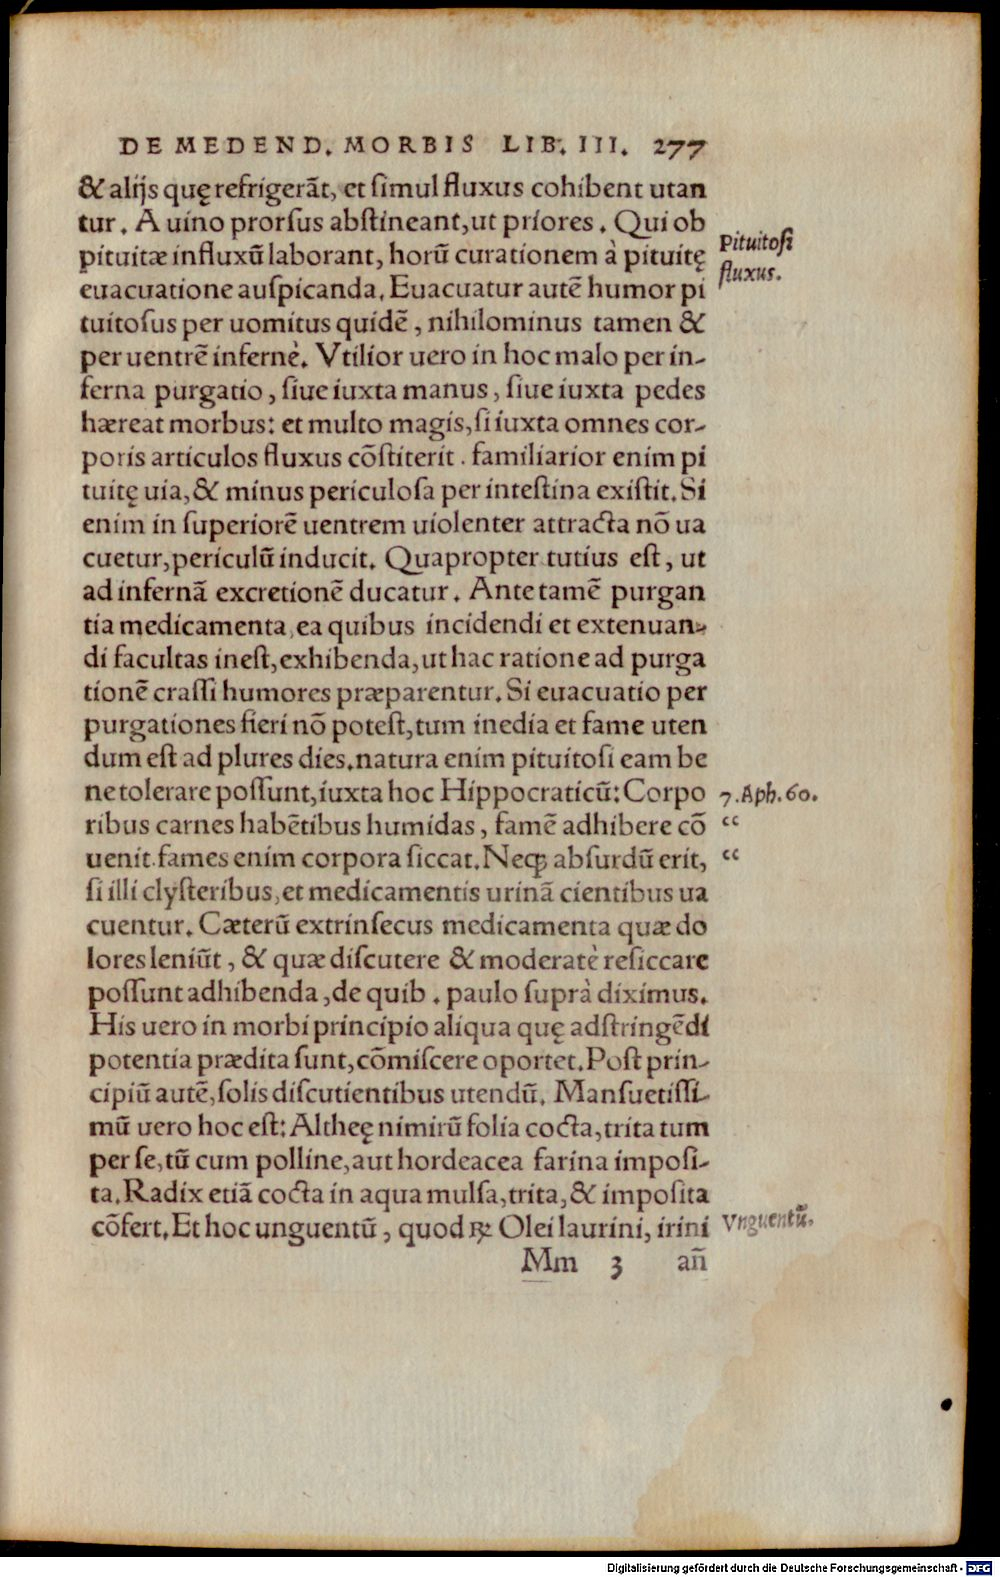 DE MEDEND. MORBIS LIB. III. 277
& alijs quę refrigerāt, et ſimul fluxus cohibent utan
tur. A uino prorſus abſtineant, ut priores. Qui ob
pituitæ influxū laborant, horū curationem à pituitę
euacuatione auſpicanda. Euacuatur autē humor pi
tuitoſus per uomitus quidē, nihilominus tamen &
per uentrē infernè. Vtilior uero in hoc malo per in-
ferna purgatio, ſiue iuxta manus, ſiue iuxta pedes
hæreat morbus: et multo magis, ſi iuxta omnes cor-
poris articulos fluxus cōſtiterit. familiarior enim pi
tuitę uia, & minus periculoſa per inteſtina exiſtit. Si
enim in ſuperiorē uentrem uiolenter attracta nō ua
cuetur, periculū inducit. Quapropter tutius eſt, ut
ad infernā excretionē ducatur. Ante tamē purgan
tia medicamenta, ea quibus incidendi et extenuan-
di facultas ineſt, exhibenda, ut hac ratione ad purga
tionē craſſi humores præparentur. Si euacuatio per
purgationes fieri nō poteſt, tum inedia et fame uten
dum eſt ad plures dies. natura enim pituitoſi eam be
ne tolerare poſſunt, iuxta hoc Hippocraticū: Corpo
ribus carnes habētibus humidas, famē adhibere cō
uenit. fames enim corpora ſiccat. Neqꝫ abſurdū erit,
ſi illi clyſteribus, et medicamentis urinā cientibus ua
cuentur. Cæterū extrinſecus medicamenta quæ do
lores leniūt, & quæ diſcutere & moderatè reſiccare
poſſunt adhibenda, de quib. paulo ſuprà diximus.
His uero in morbi principio aliqua quę adſtringēdi
potentia prædita ſunt, cōmiſcere oportet. Poſt prin-
cipiū autē, ſolis diſcutientibus utendū. Manſuetiſſi-
mū uero hoc eſt: Altheę nimirū folia cocta, trita tum
per ſe, tū cum polline, aut hordeacea farina impoſi-
ta. Radix etiā cocta in aqua mulſa, trita, & impoſita
cōfert. Et hoc unguentū, quod ℞ Olei laurini, irini
Mm 3 an̄
Pituitoſi
fluxus.
7. Aph. 60.
“
“
Vnguentū.
Digitalisierung gefördert durch die Deutsche Forschungsgemeinschaft - DFG